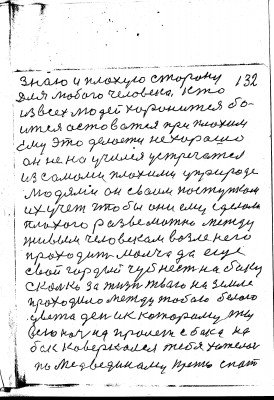 знаю и плохую сторону 132
для любого человека, кто
из всех людей хоронится бо-
ится остоватся при плохим
ему это делаеть не хорошо
он не на училея устречатся
из самыми плохими у природе
людями он сваим поступкам
их учет чтобы они ему сделали
плохого разве можно между
живым человекам возле него
проходит молча да еще
свой гордый чуб нест на баку
сколко за жизн тваю на земле
проходило между тобою белого
света ден и к которому ты
всю ноч на пролет с бака на
бок коверкался тебя хотелос
по медвединаму спат